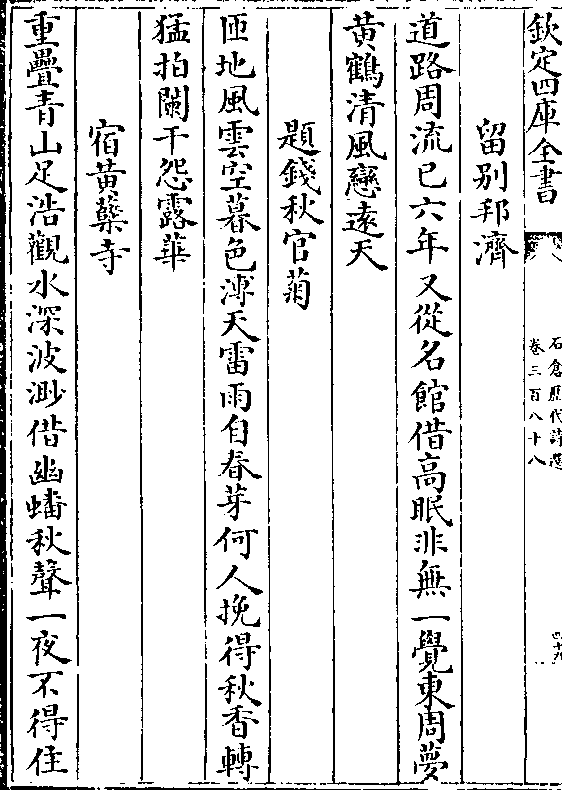 欽定四庫全書
石倉歷代詩選
卷三百八十八
四十九
留别邦濟
道路周流已六年又從名館借高眠非無一覺東周夢
黄鶴清風戀逺天
題錢秋官菊
匝地風雲空暮色溥天雷雨自春芽何人挽得秋香轉
猛拍闌干怨露華
宿黄蘖寺
重疊青山足浩觀水深波渺借幽蟠秋聲一夜不得住